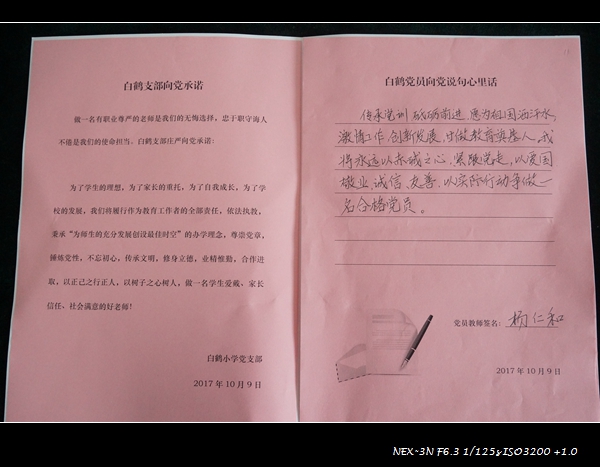 白鹤支部向党承诺
做一名有职业尊严的老师是我们的无悔选择，忠于职守诲人
不倦是我们的使命担当。白鹤支部庄严向党承诺：
为了学生的理想，为了家长的重托，为了自我成长，为了学
校的发展，我们将履行作为教育工作者的全部责任，依法执教，
秉承“为师生的充分发展创设最佳时空”的办学理念，尊崇党章，
锤炼党性，不忘初心，传承文明，修身立德，业精惟勤，合作进
取，以正己之行正人，以树子之心树人，做一名学生爱戴、家长
信任、社会满意的好老师！
白鹤小学党支部
2017年10月9日
白鹤党员向党说句心里话
传承党训 砥砺前进，愿为祖国洒汗水，
激情工作，创新发展，甘做教育奠基人。我
将永远以赤诚之心，紧跟党走，以爱国
敬业，诚信，友善，以实际行动争做一
名合格党员。
党员教师签名：杨仁和
2017年10月9日
NEX-3N F6.3 1/125s ISO3200 +1.0